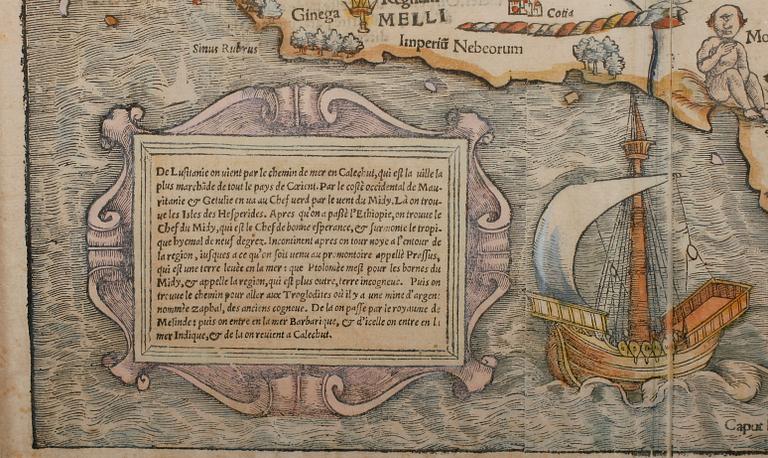 Regnum
Ginega
MELLI
Cotia
Mo
Sinus Rubrus
Imperiū Nebeorum
De Lusitanie on vient par le chemin de mer en Calechut, qui est la ville la
plus marchāde de tout le pays de Carient. Par le costé occidental de Mau-
ritanie & Getulie en va au Chef uerd par le uent du Midy. Là on trou-
ue les Isles des Hesperides. Apres qu'on a passé l'Ethiopie, on trouue le
Chef du Midy, qui est le Chef de bonne esperance, & surmonte le tropi-
que hyemal de neuf degrez. Incontinent apres on tournoye a l'entour de
la region, iusques a ce qu'on soit uenu au promontoire appellé Prassus,
qui est une terre leuée en la mer: que Ptolomée mest pour les bornes du
Midy, & appelle la region, qui est plus outre, terre incogneue. Puis on
trouue le chemin pour aller aux Troglodites où il y a une mine d'argent
nommée zaphal, des anciens cogneue. De la on passe par le royaume de
Melinde: puis on entre en la mer Barbarique, & d'icelle on entre en la
mer Indique, & de la on reuient a Calechut.
Caput